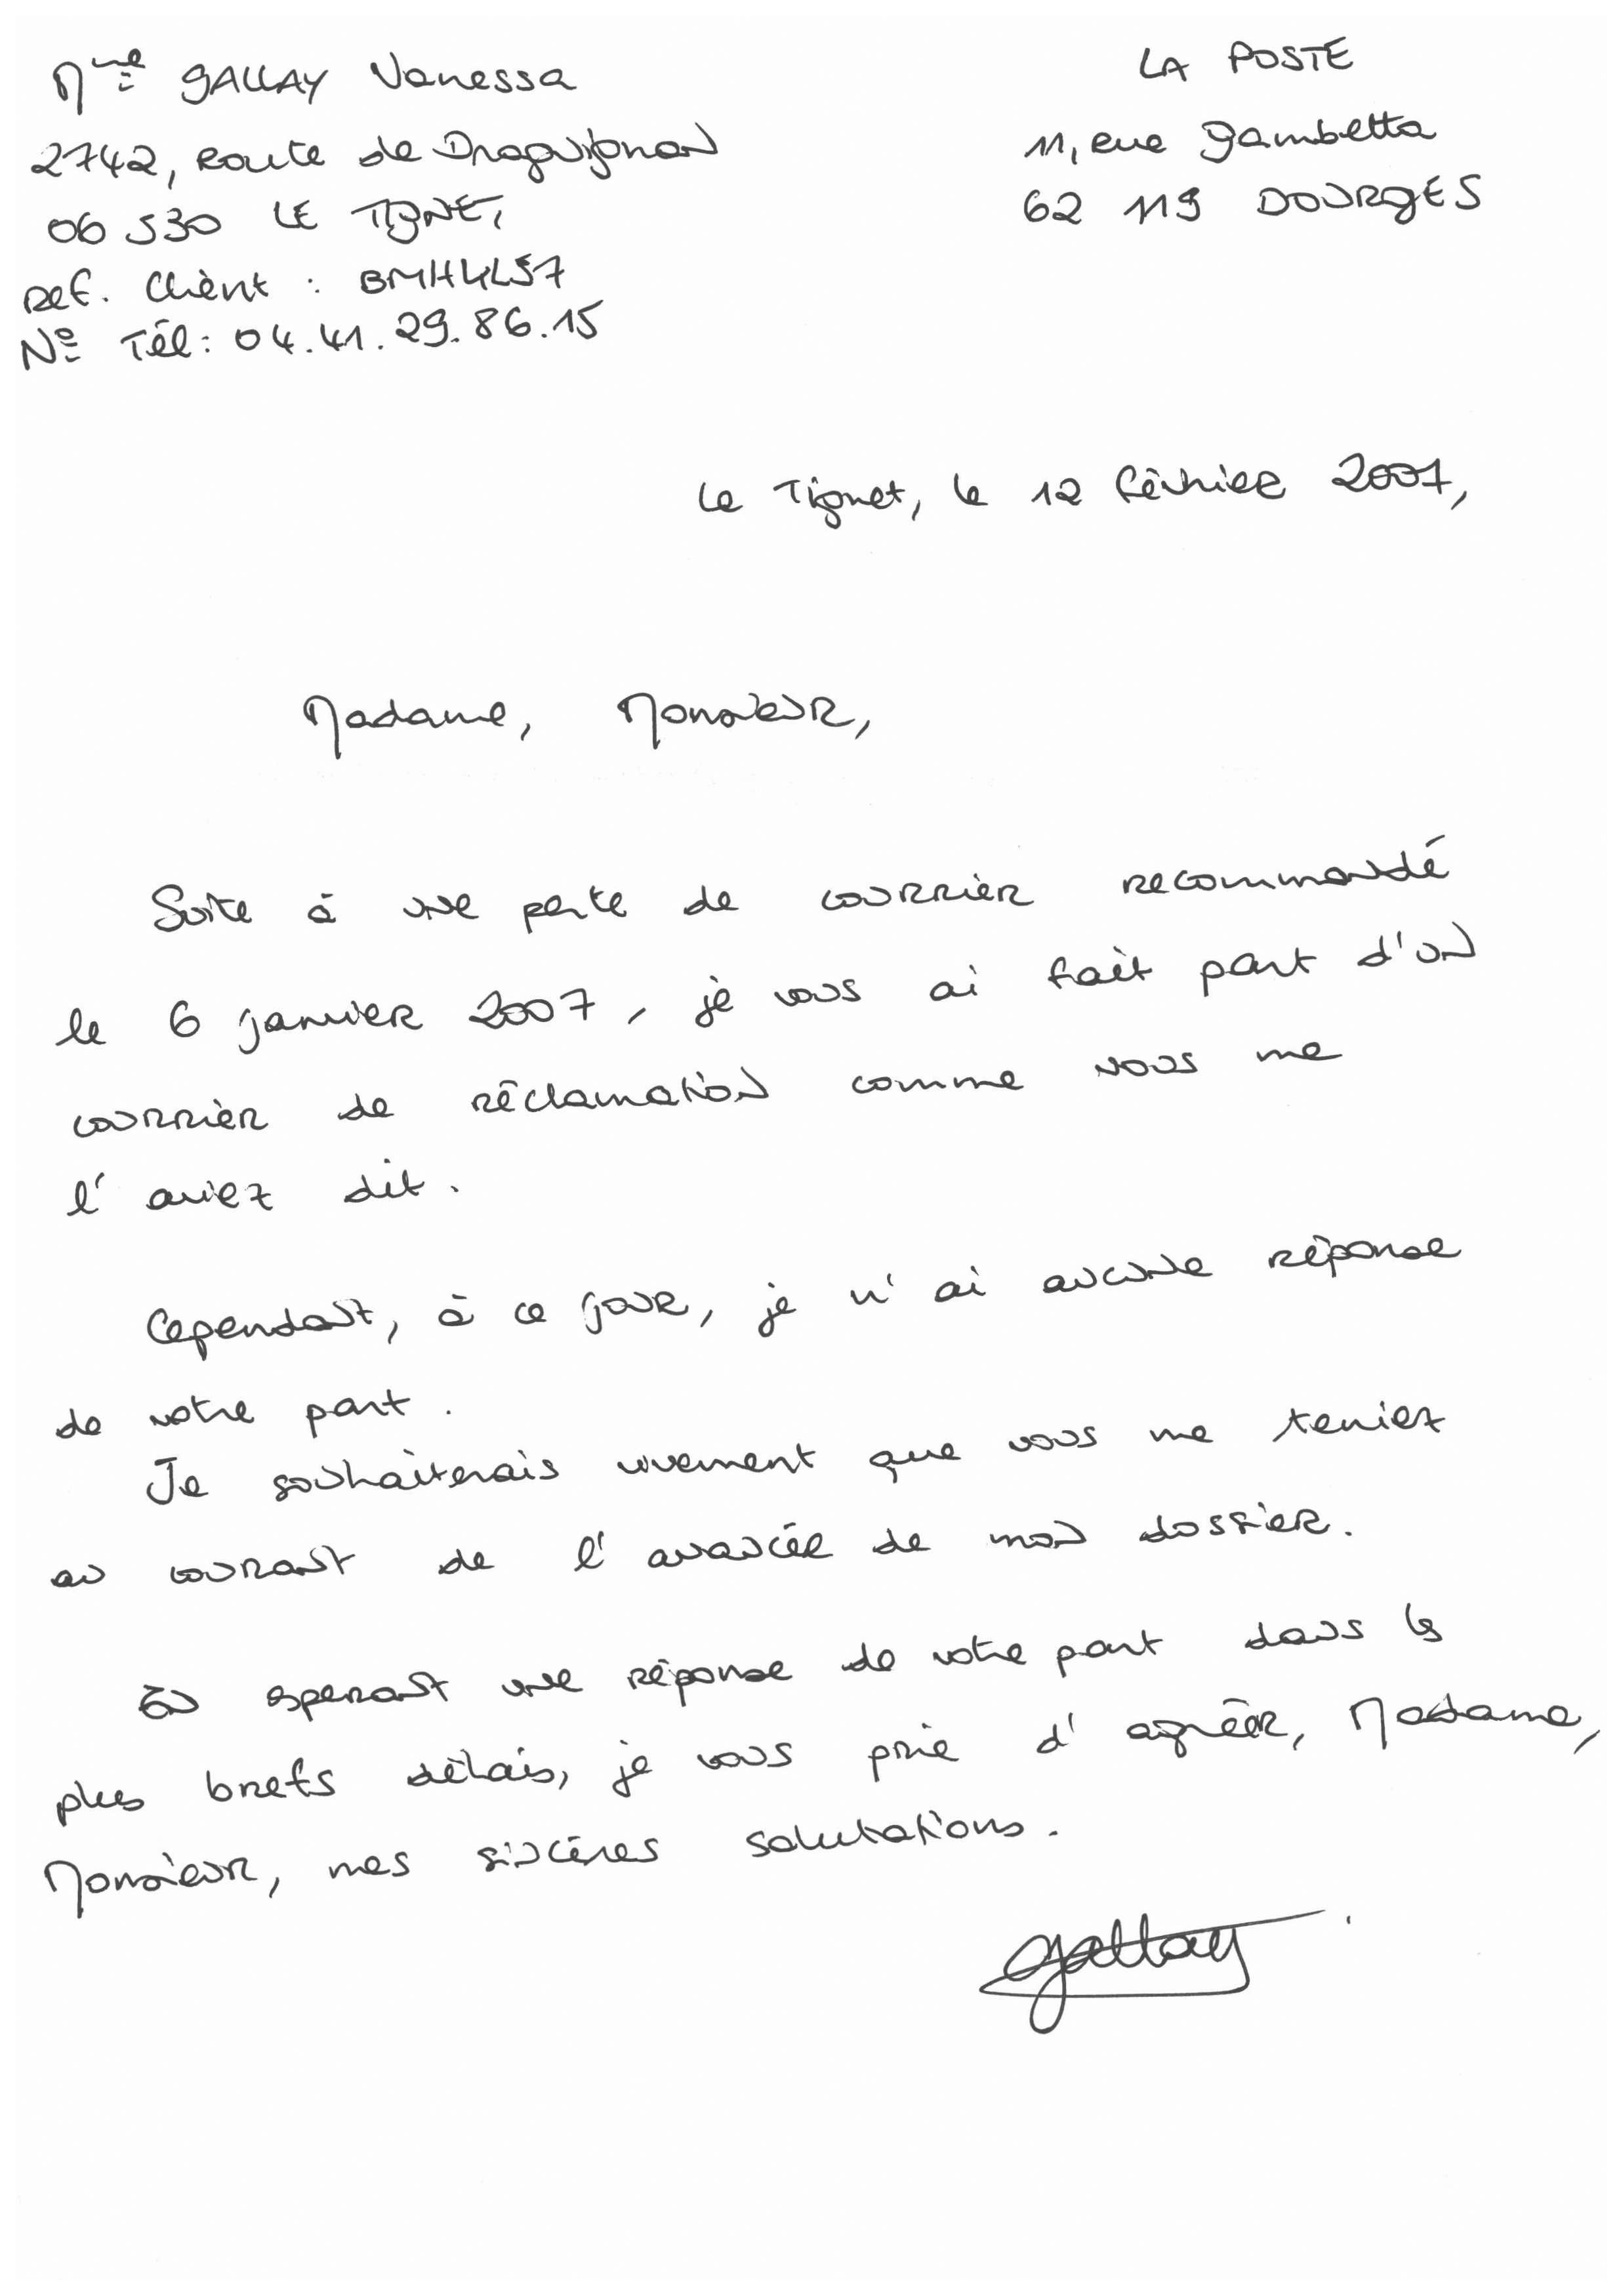 Mme GALLAY Vanessa
2742, Route de Draguignan
06 530 LE TIGNET,
Ref. Client : BMHULS7
N° Tél : 04.41.29.86.15
LA POSTE
11, rue Gambetta
62 119 DOURGES
Le Tignet, le 12 février 2007,
Madame, Monsieur,
Suite à une perte de courrier recommandé
le 6 janvier 2007, je vous ai fait part d'un
courrier de réclamation comme vous me
l'aviez dit.
Cependant, à ce jour, je n'ai aucune réponse
de votre part.
Je souhaiterais vivement que vous me teniez
au courant de l'avancée de mon dossier.
En esperant une réponse de votre part dans les
plus brefs délais, je vous prie d'agréer, Madame,
Monsieur, mes sincères salutations.
Gallay